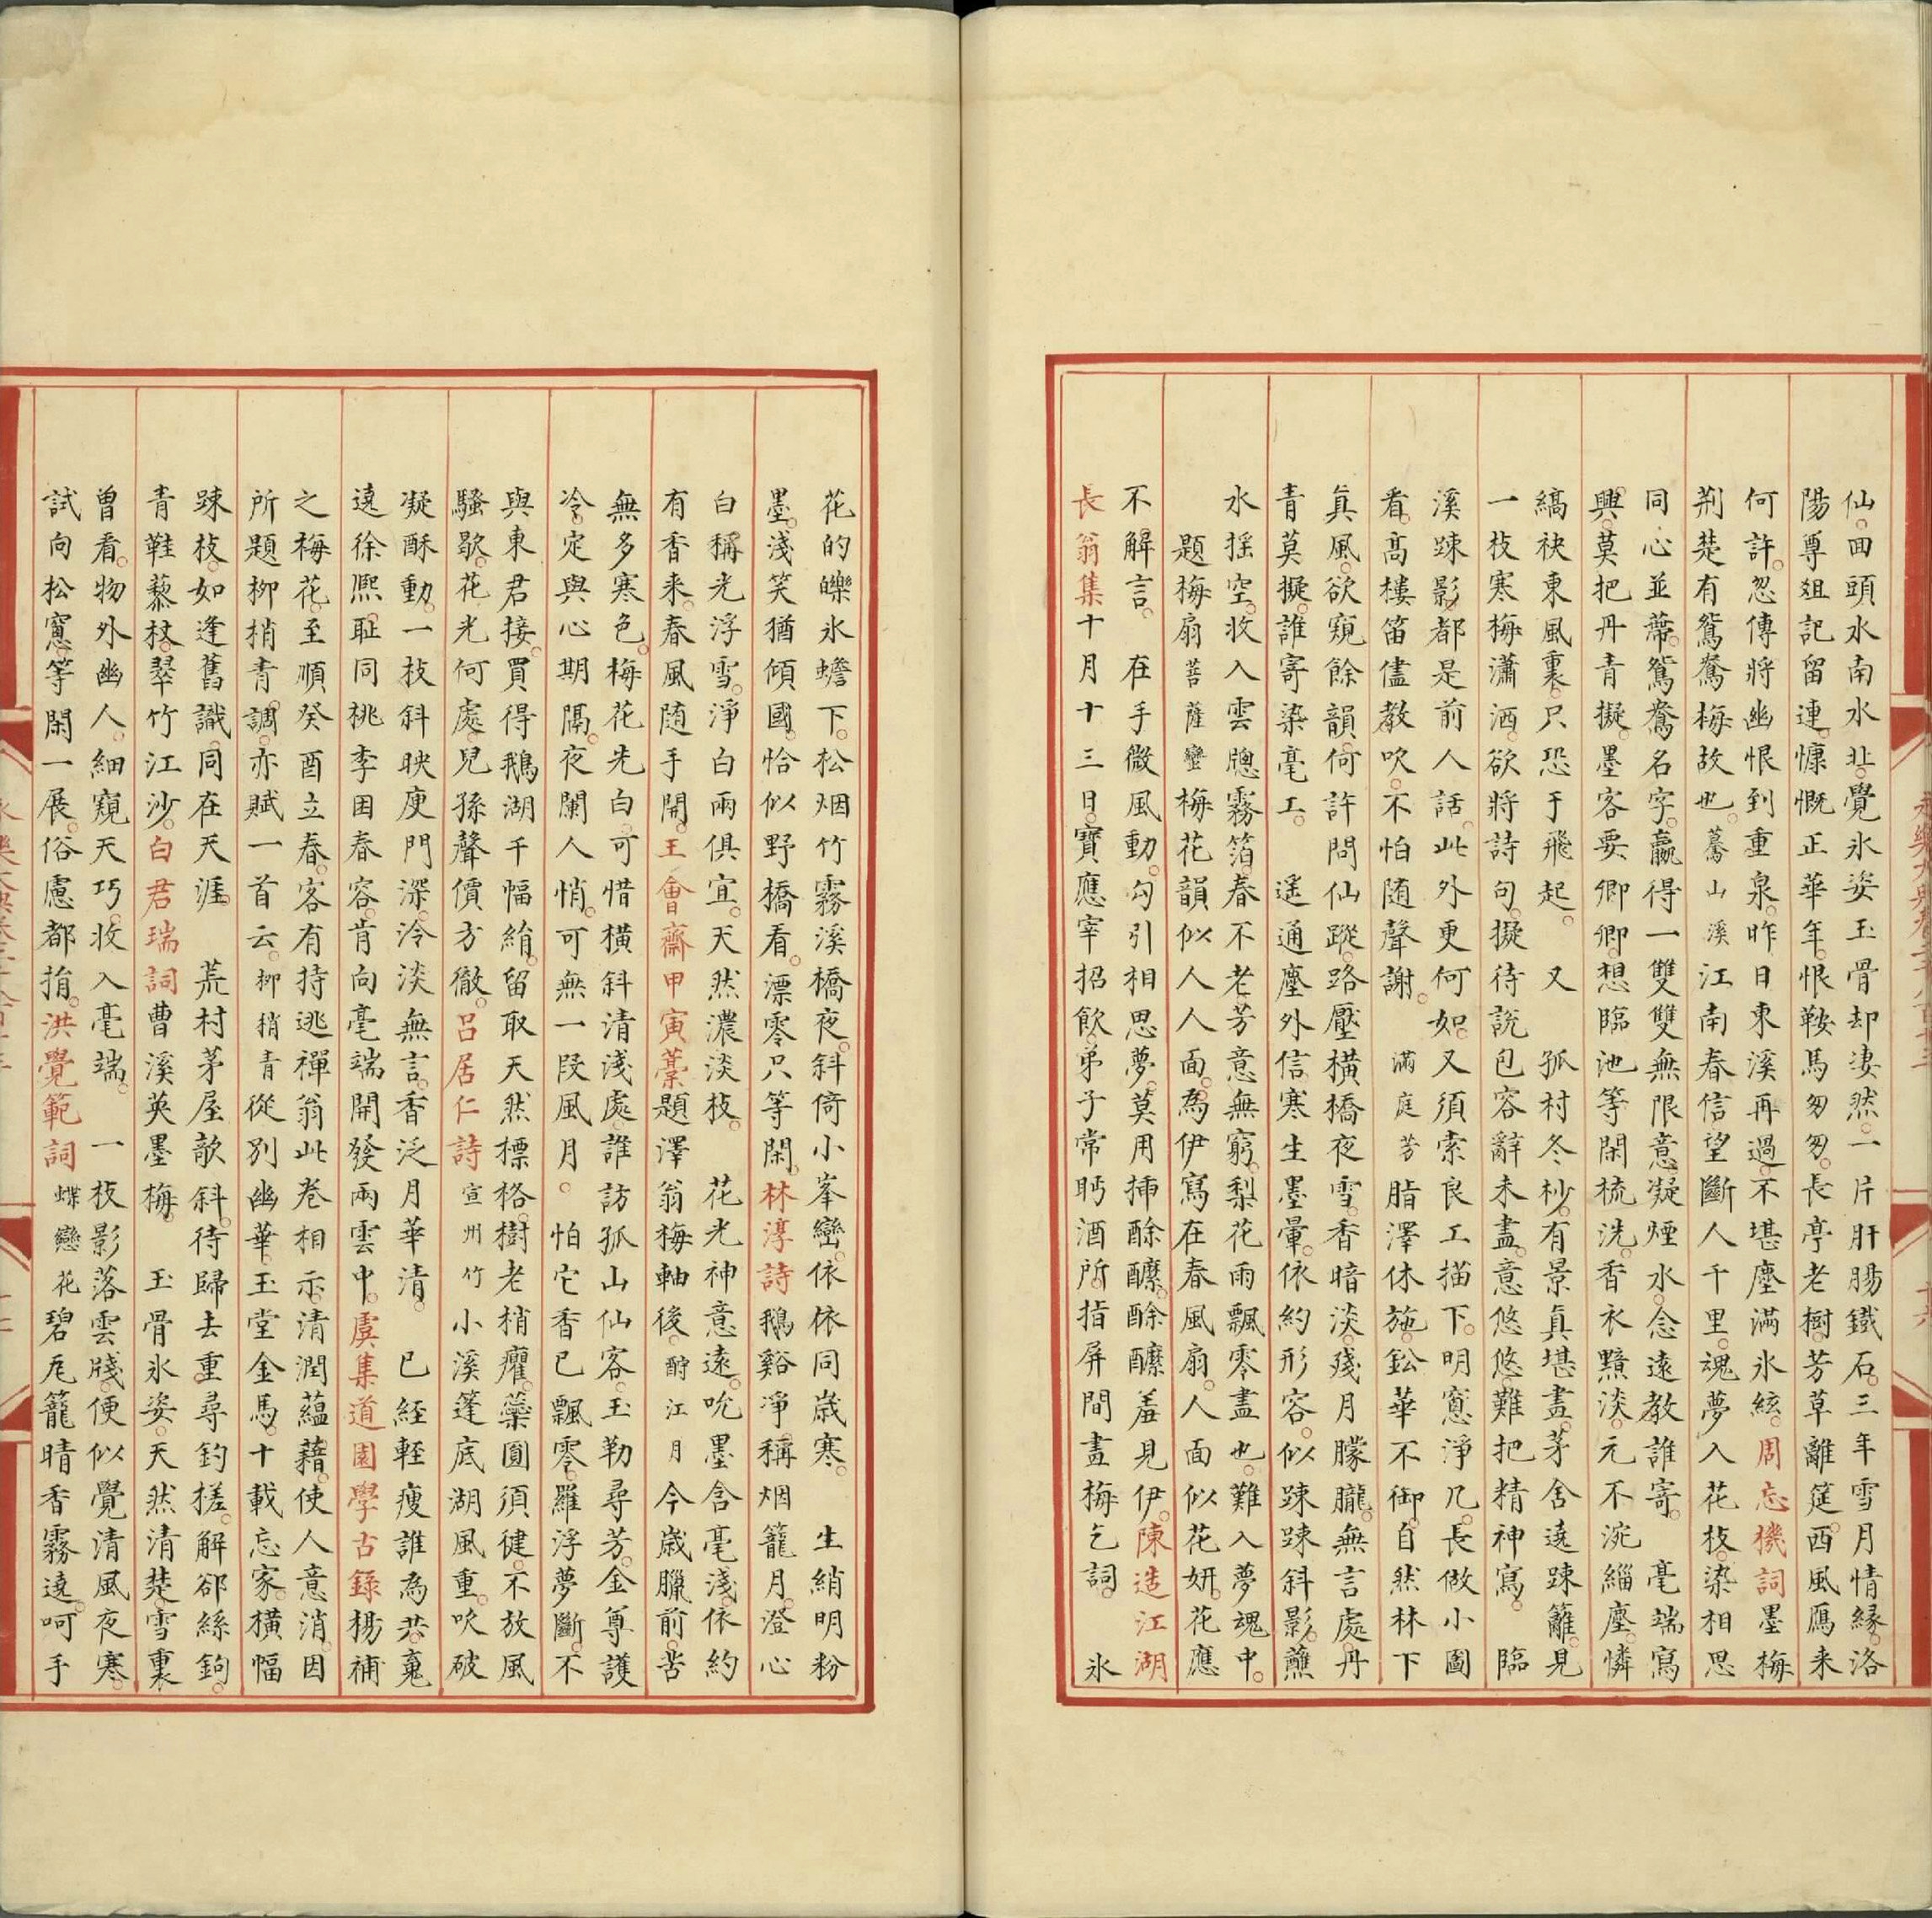 仙。回頭水南水北。覺氷姿玉骨却凄然。一片肝腸鐵石。三年雪月情縁。洛
陽尊俎記留連。慷慨正華年。恨鞍馬匆匆。長亭老樹。芳草離筵。西風鴈来
何許。忽傳將幽恨到重泉。昨日東溪再過。不堪塵滿氷絃。周忘機詞墨梅
荆楚有鴛鴦梅故也。驀山溪江南春信望斷人千里。魂夢入花枝。染相思
同心並蔕。鴛鴦名字。贏得一雙雙。無限意。凝煙水。念遠教誰寄。 毫端寫
興。莫把丹青擬。墨客要卿卿。想臨池等閑梳洗。香衣黯淡。元不涴緇塵。憐
縞袂東風裏。只恐于飛起。 又 孤村冬杪。有景真堪畫。茅舍遶踈籬。見
一枝寒梅瀟洒。欲將詩句。擬待説包容。辭未盡。意悠悠。難把精神寫。 臨
溪踈影。都是前人話。此外更何如。又須索良工描下。明窻淨几。長做小圖
看。高樓笛儘教吹。不怕随聲謝。 滿庭芳脂澤休施。鈆華不御。自然林下
真風。欲窺餘韻。何許問仙蹤。路壓橫橋夜雪。香暗淡。殘月朦朧。無言處。丹
青莫擬。誰寄染毫工。 遥通塵外信。寒生墨暈。依約形容。似踈踈斜影。蘸
水揺空。收入雲牕霧箔。春不老。芳意無窮。梨花雨飄零盡也。難入夢魂中。
題梅扇菩薩蠻梅花韻似人人面。為伊寫在春風扇。人面似花妍。花應
不解言。 在手微風動。勾引相思夢。莫用挿酴醾。酴醾羞見伊。陳造江湖
長翁集十月十三日。寳應宰招飲。弟子常眄酒所。指屏間畫梅乞詞。 氷
花的皪氷蟾下。松烟竹霧溪橋夜。斜倚小峯巒。依依同歲寒。 生綃明粉
墨。淺笑猶傾國。恰似野橋看。漂零只等閑。林淳詩鵝谿淨稱烟籠月。澄心
白稱光浮雪。淨白兩俱宜。天然濃淡枝。 花光神意遠。吮墨含毫淺。依約
有香来。春風随手開。王會齋甲寅藁題澤翁梅軸後。酹江月今歲臘前。苦
無多寒色。梅花先白。可惜橫斜清淺處。誰訪孤山仙客。玉勒尋芳。金尊護
冷。定與心期隔。夜闌人悄。可無一段風月。 怕它香已飄零。羅浮夢斷。不
與東君接。買得鵝湖千幅絹。留取天然標格。樹老梢癯。蘂圓須健。不放風
騷歇。花光何處。兒孫聲價方徹。呂居仁詩宣州竹小溪篷底湖風重。吹破
凝酥動。一枝斜映庾門深。冷淡無言。香泛月華清。 已經輕瘦誰為共。寬
遠徐熈。耻同桃李困春容。肯向毫端開發兩雲中。虞集道園學古録楊補
之梅花。至順癸酉立春。客有持逃禪翁此卷相示。清潤蘊藉。使人意消。因
所題柳梢青調。亦賦一首云。柳梢青從别幽華。玉堂金馬。十載忘家。橫幅
踈枝。如逢舊識。同在天涯。 荒村茅屋欹斜。待歸去重尋釣槎。解郤絲鉤。
青鞋藜杖。翠竹江沙。白君瑞詞曹溪英墨梅。 玉骨氷姿。天然清楚。雪裏
曽看。物外幽人。細窺天巧。收入毫端。 一枝影落雲牋。便似覺清風夜寒。
試向松窻。等閑一展。俗慮都捐。洪覺範詞蝶戀花碧瓦籠晴香霧遶。呵手